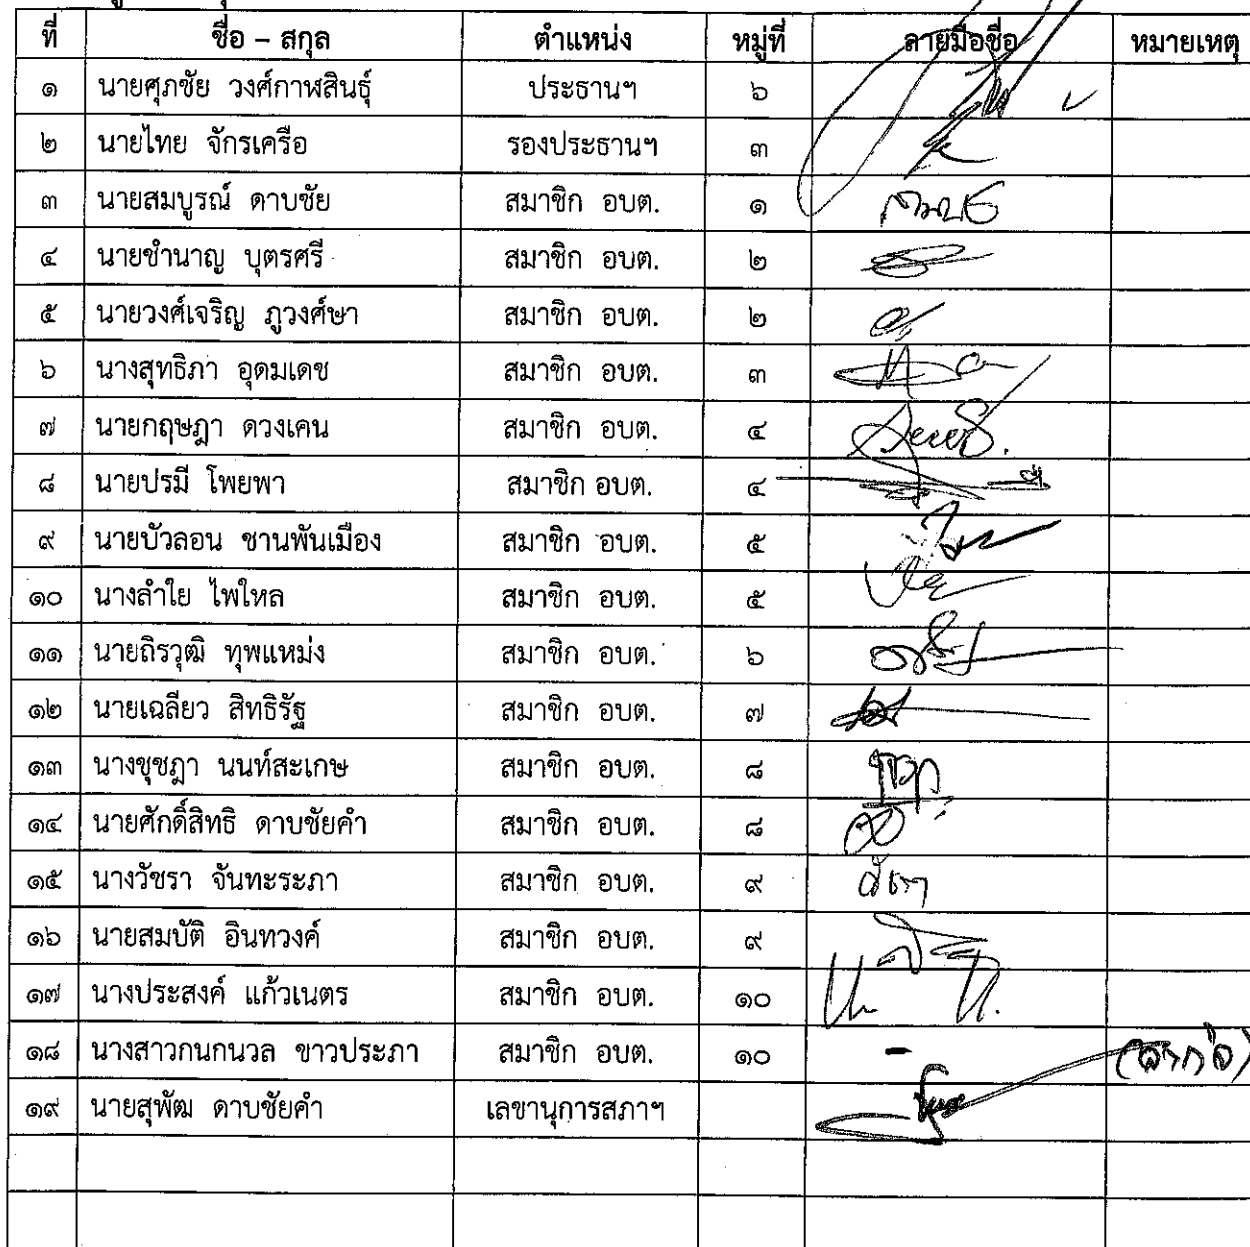 ที่ ชื่อ – สกุล ตำแหน่ง หมู่ที่ ลายมือชื่อ หมายเหตุ
๑ นายศุภชัย วงศ์กาฬสินธุ์ ประธานฯ ๖
๒ นายไทย จักรเครือ รองประธานฯ ๓
๓ นายสมบูรณ์ ดาบชัย สมาชิก อบต. ๑
๔ นายชำนาญ บุตรศรี สมาชิก อบต. ๒
๕ นายวงศ์เจริญ ภูวงศ์ษา สมาชิก อบต. ๒
๖ นางสุทธิภา อุดมเดช สมาชิก อบต. ๓
๗ นายกฤษฎา ดวงเคน สมาชิก อบต. ๔
๘ นายปรมี โพยพา สมาชิก อบต. ๔
๙ นายบัวลอน ชานพันเมือง สมาชิก อบต. ๕
๑๐ นางลำใย ไพใหล สมาชิก อบต. ๕
๑๑ นายถิรวุฒิ ทุพแหม่ง สมาชิก อบต. ๖
๑๒ นายเฉลียว สิทธิรัฐ สมาชิก อบต. ๗
๑๓ นางชุชฎา นนท์สะเกษ สมาชิก อบต. ๘
๑๔ นายศักดิ์สิทธิ ดาบชัยคำ สมาชิก อบต. ๘
๑๕ นางวัชรา จันทะระภา สมาชิก อบต. ๙
๑๖ นายสมบัติ อินทวงค์ สมาชิก อบต. ๙
๑๗ นางประสงค์ แก้วเนตร สมาชิก อบต. ๑๐
๑๘ นางสาวกนกนวล ขาวประภา สมาชิก อบต. ๑๐ - (ลากิจ)
๑๙ นายสุพัฒ ดาบชัยคำ เลขานุการสภาฯ